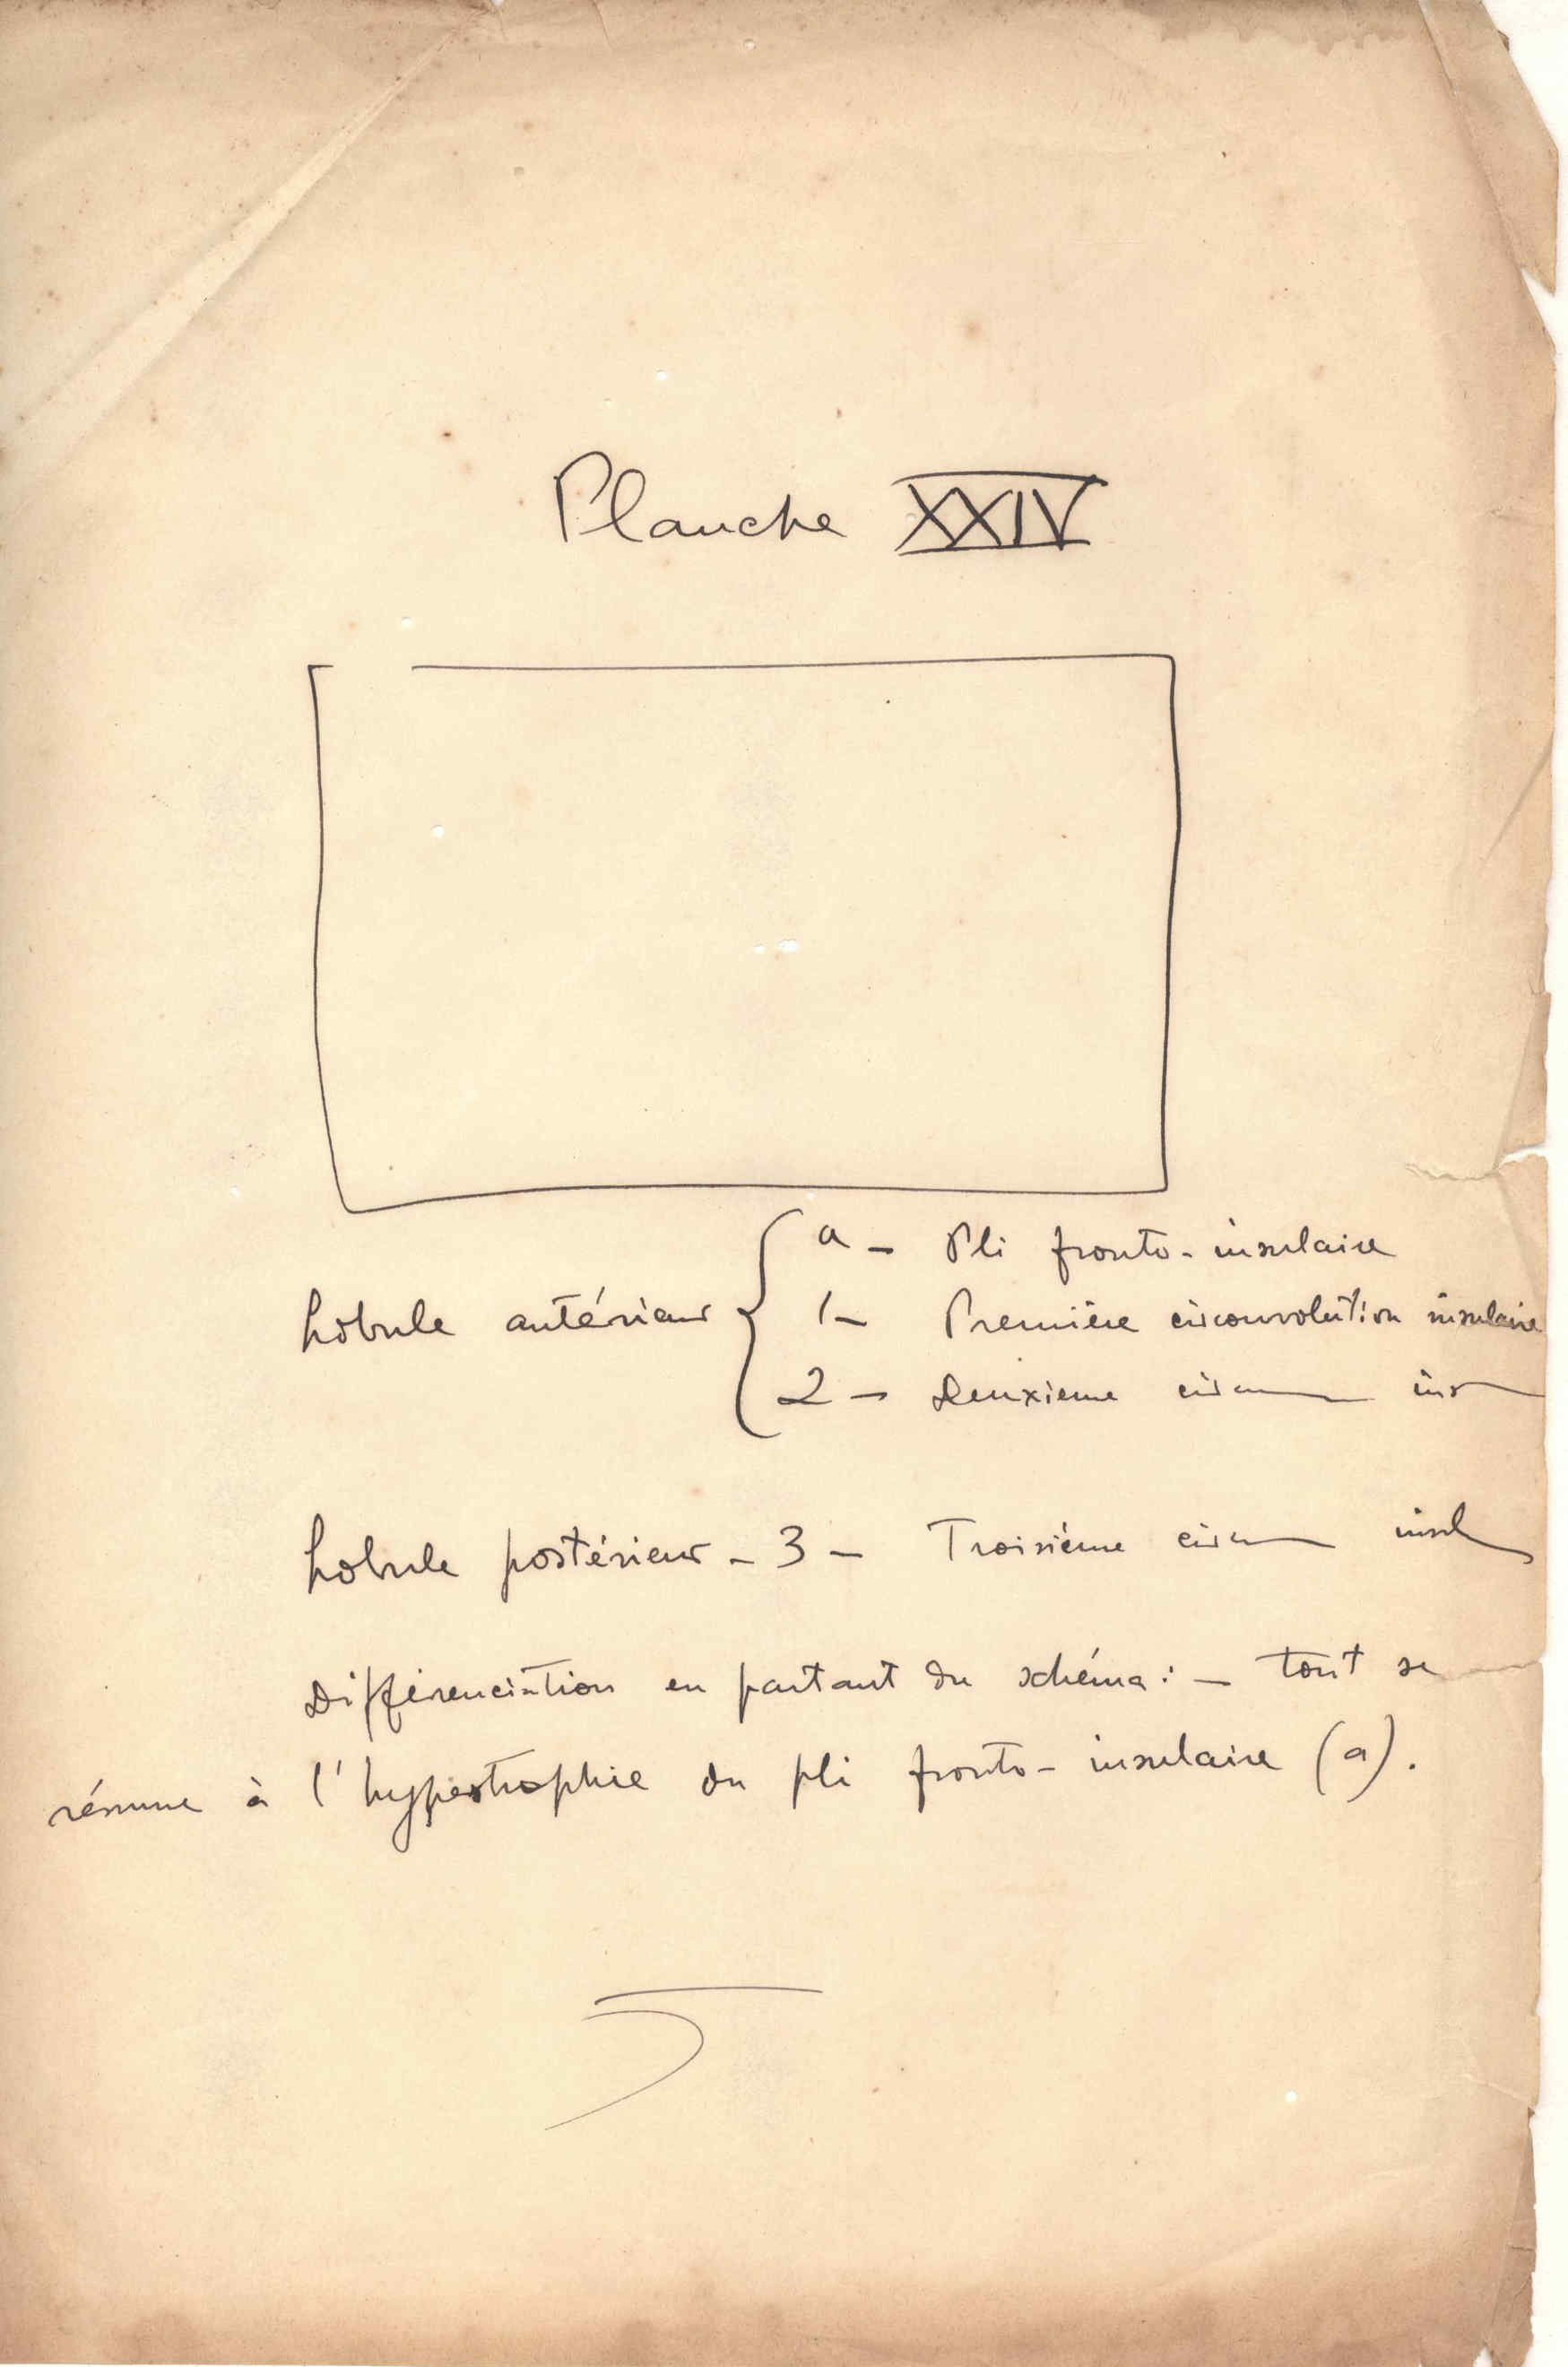 Planche XXIV
a - Pli fronto-insulaire
Lobule antérieur { 1- Première circonvolution insulaire
2 - Deuxieme circ ins
Lobule postérieur - 3 - Troisième circ insul
Différenciation en partant du schéma : - tout se
résume à l'hypertrophie du pli fronto-insulaire (a).